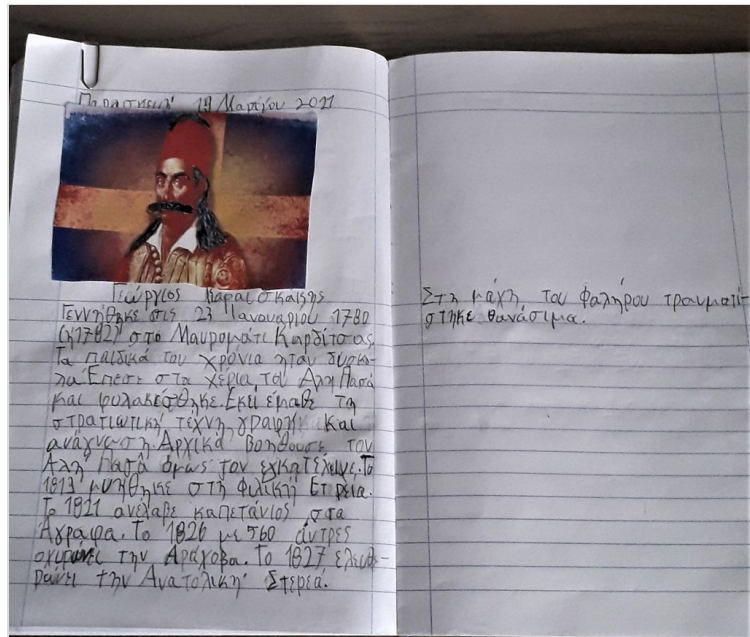 Παρασκευή 19 Μαρτίου 2021
Γεώργιος Καραϊσκάκης
Γεννήθηκε στις 23 Ιανουαρίου 1780
(ή 1782) στο Μαυρομάτι Καρδίτσας.
Τα παιδικά του χρόνια ήταν δύσκο-
λα. Έπεσε στα χέρια του Αλή Πασά
και φυλακίσθηκε. Εκεί έμαθε τη
στρατιωτική τέχνη, γραφή και
ανάγνωση. Αρχικά βοηθούσε τον
Αλή Πασά όμως τον εγκατέλειψε. Το
1813 μυήθηκε στη Φιλική Εταιρεία.
Το 1821 ανέλαβε καπετάνιος στα
Άγραφα. Το 1826 με 560 άντρες
οχυρώνει την Αράχοβα. Το 1827 ελευθε-
ρώνει την Ανατολική Στερεά.
Στη μάχη του Φαλήρου τραυματί-
στηκε θανάσιμα.